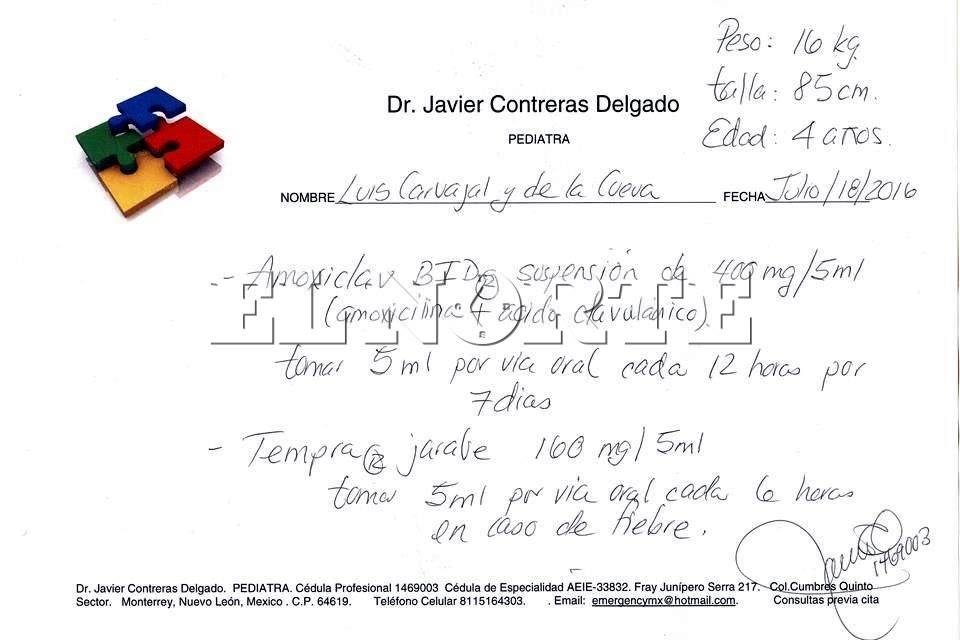 Peso: 16 kg.
talla: 85 cm.
Edad: 4 años.
Dr. Javier Contreras Delgado
PEDIATRA
NOMBRE Luis Carvajal y de la Cueva FECHA Julio/18/2016
- Amoxiclav BID® suspensión de 400 mg/5ml
(amoxicilina + ácido clavulánico).
EL NORTE
tomar 5 ml por vía oral cada 12 horas por
7 dias
- Tempra® jarabe 160 mg/5ml
tomar 5ml por vía oral cada 6 horas
en caso de fiebre.
1469003
Dr. Javier Contreras Delgado. PEDIATRA. Cédula Profesional 1469003 Cédula de Especialidad AEIE-33832. Fray Junípero Serra 217. Col.Cumbres Quinto
Sector. Monterrey, Nuevo León, Mexico . C.P. 64619. Teléfono Celular 8115164303. . Email: emergencymx@hotmail.com. Consultas previa cita